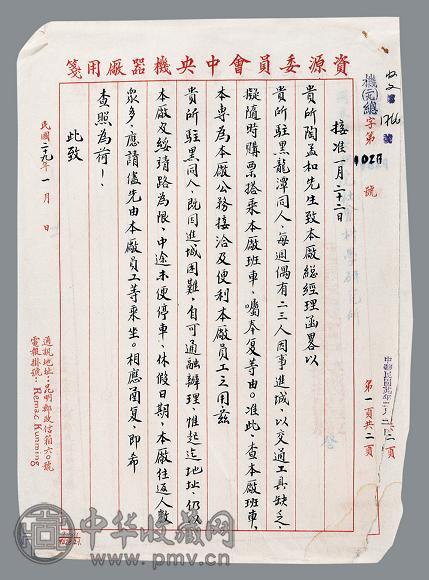 資源委員會中央機器廠用箋
機(元)總字第1028號
1766
接准一月二十二日
貴所陶孟和先生致本廠總經理函畧以
貴所駐黑龍潭同人，每週偶有二三人因事進城，以交通工具缺乏，
擬隨時購票搭乘本廠班車，囑奉复等由。准此，查本廠班車，
本專為本廠公務接洽及便利本廠員工之用，茲
貴所駐黑同人，既因進城困難，自可通融辦理，惟起迄地址，仍以
本廠及綏靖路為限，中途未便停車，休假日期，本廠往返人數
眾多，應請儘先由本廠員工等乘坐。相應函复，即希
查照為荷！
此致
民國二十九年一月 日
第一頁共二頁
共二頁
通訊地址：昆明郵政信箱六〇號
電報掛號：Remac Kunming
中华收藏网
www.pmv.cn